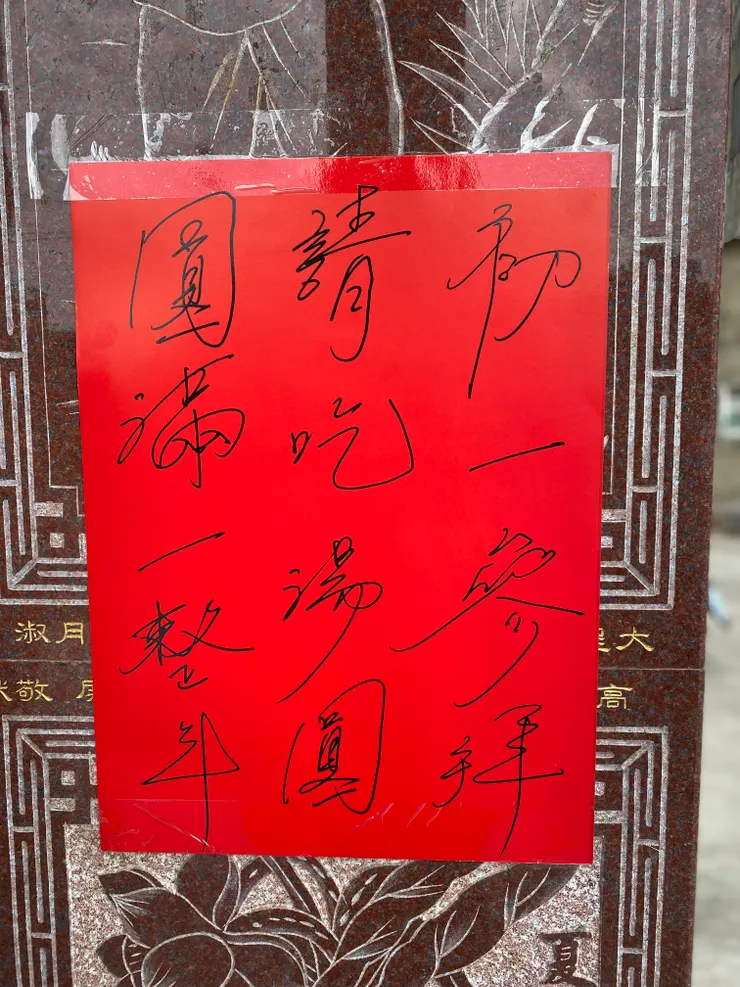 初一參拜
請吃湯圓
圓滿一整年
大
淑月
高
敬
夏